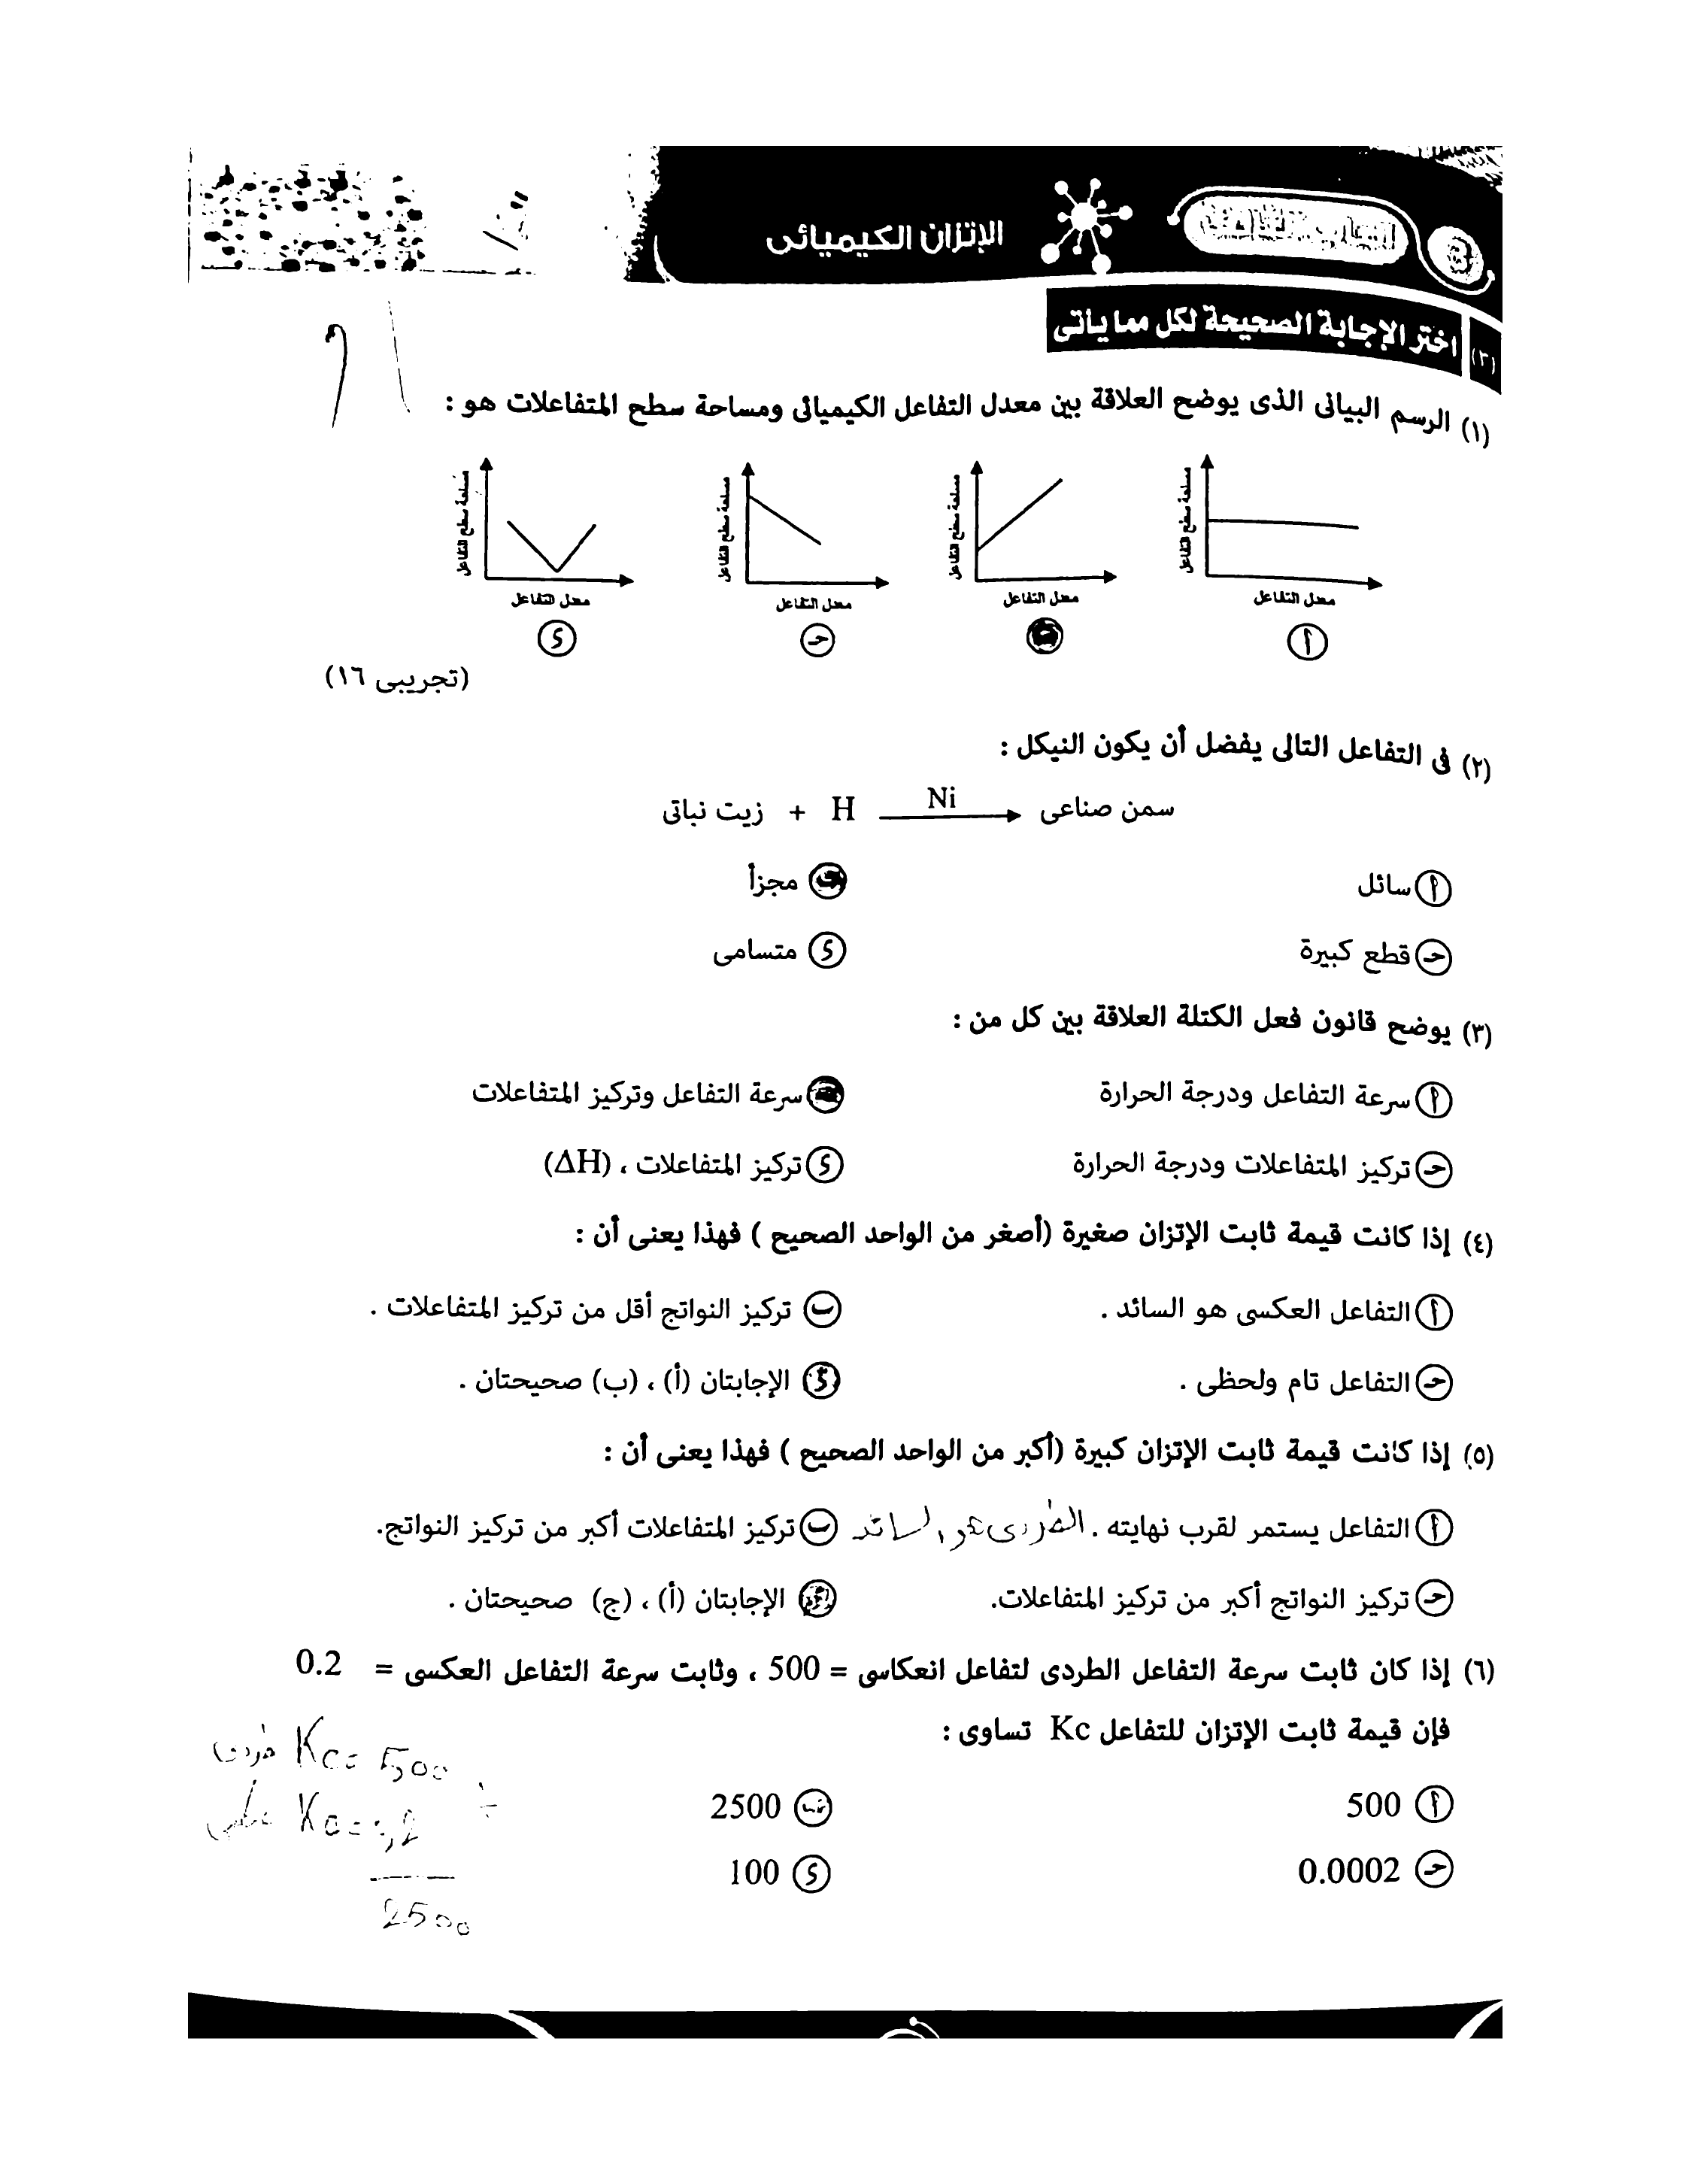 الإتزان الكيميائى
3
(٣) اختر الإجابة الصحيحة لكل مما يأتى
(١) الرسم البيانى الذى يوضح العلاقة بين معدل التفاعل الكيميائى ومساحة سطح المتفاعلات هو :
مساحة سطح التفاعل مساحة سطح التفاعل مساحة سطح التفاعل مساحة سطح التفاعل
معدل التفاعل معدل التفاعل معدل التفاعل معدل التفاعل
أ ب جـ د
(تجريبى ١٦)
(٢) فى التفاعل التالى يفضل أن يكون النيكل :
زيت نباتى + H Ni سمن صناعى
أ سائل ب مجزأ
جـ قطع كبيرة د متسامى
(٣) يوضح قانون فعل الكتلة العلاقة بين كل من :
أ سرعة التفاعل ودرجة الحرارة سرعة التفاعل وتركيز المتفاعلات
جـ تركيز المتفاعلات ودرجة الحرارة د تركيز المتفاعلات ، (ΔH)
(٤) إذا كانت قيمة ثابت الإتزان صغيرة (أصغر من الواحد الصحيح ) فهذا يعنى أن :
أ التفاعل العكسى هو السائد . ب تركيز النواتج أقل من تركيز المتفاعلات .
جـ التفاعل تام ولحظى . د الإجابتان (أ) ، (ب) صحيحتان .
(٥) إذا كانت قيمة ثابت الإتزان كبيرة (أكبر من الواحد الصحيح ) فهذا يعنى أن :
أ التفاعل يستمر لقرب نهايته . الطردى هو السائد ب تركيز المتفاعلات أكبر من تركيز النواتج.
جـ تركيز النواتج أكبر من تركيز المتفاعلات. د الإجابتان (أ) ، (ج) صحيحتان .
(٦) إذا كان ثابت سرعة التفاعل الطردى لتفاعل انعكاسى = 500 ، وثابت سرعة التفاعل العكسى = 0.2
فإن قيمة ثابت الإتزان للتفاعل Kc تساوى :
طردى Kc = 500
عكسى Kc = 0,2 ÷
2500
أ 500 ب 2500
جـ 0.0002 د 100